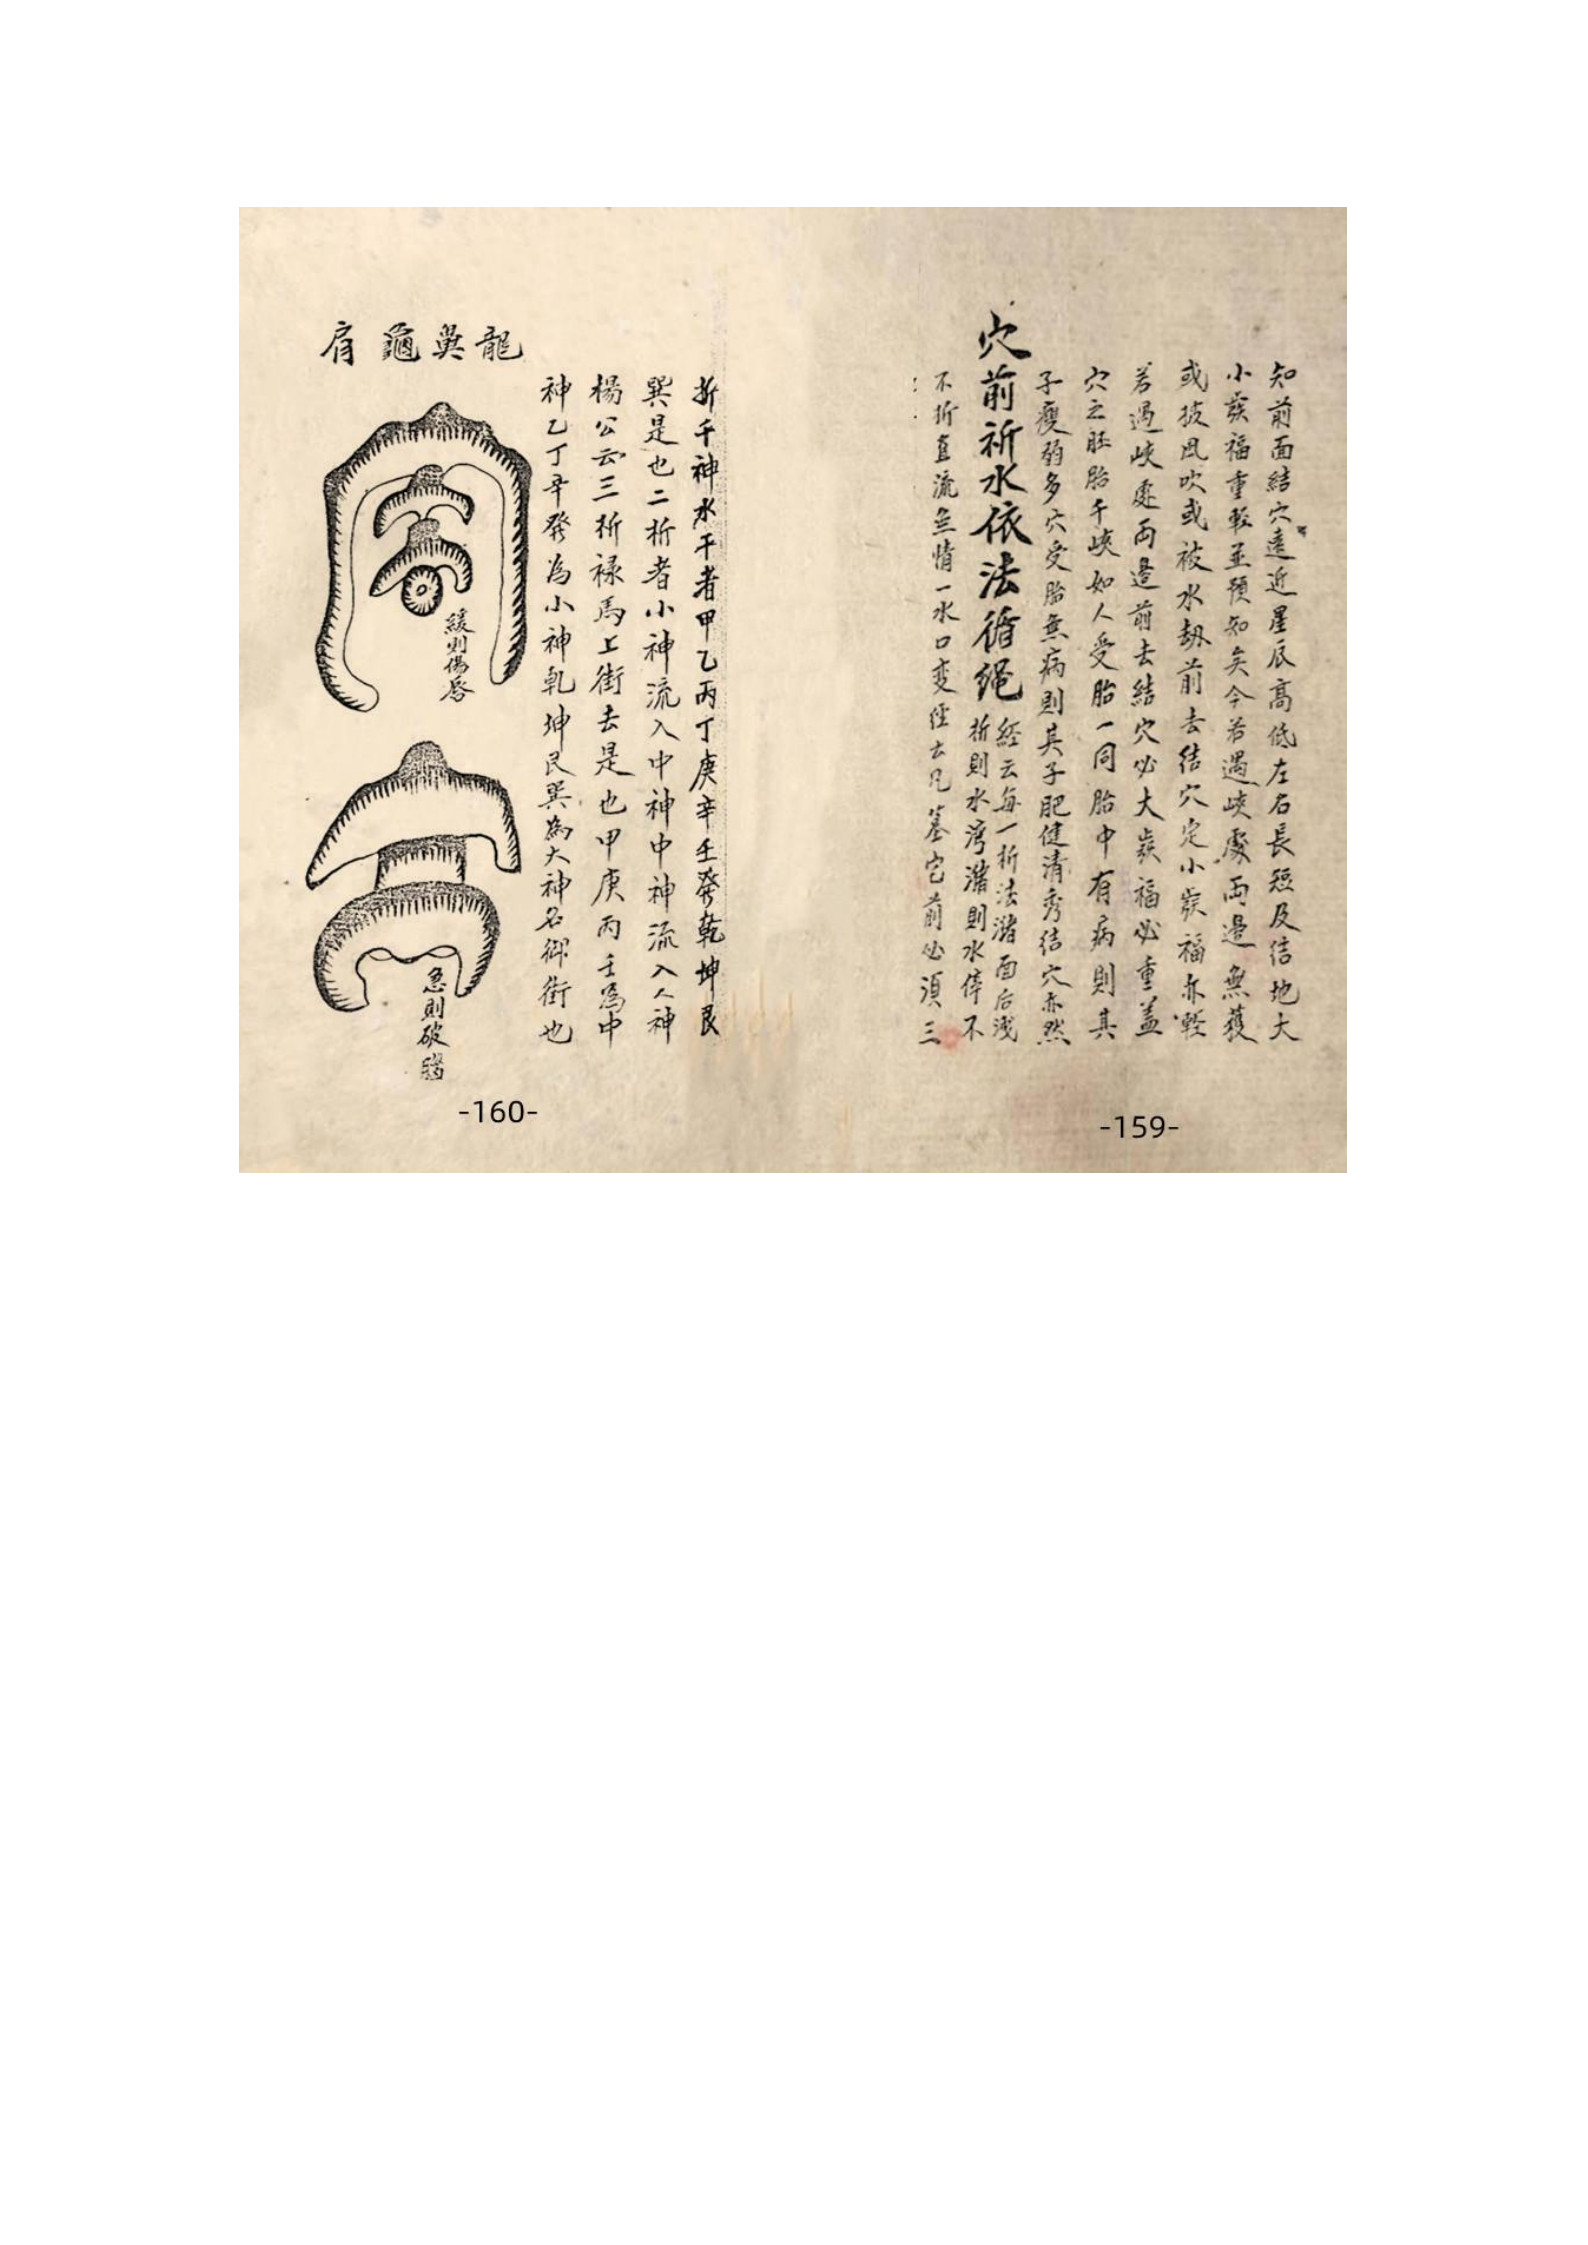 知前面結穴遠近星辰高低左右長短及結地大
小發福重輕並預知矣今若遇峽處兩邊無護
或披風吹或被水劫前去結穴定小發福亦輕
若過峽處兩邊前去結穴必大發福必重蓋
穴之胚胎于峽如人受胎一同胎中有病則其
子瘦弱多穴受胎無病則其子肥健清秀结穴亦然
穴前祈水依法循绳
經云每一折法潴面后浅
折則水湾潴則水停不
不折直流無情一水口变径去凡墓宅前必須三
-159-
折千神水干者甲乙丙丁庚辛壬癸乾坤艮
巽是也二折者小神流入中神中神流入人神
楊公云三折禄馬上街去是也甲庚丙壬為中
神乙丁辛癸為小神乾坤艮巽為大神名御街也
肩龜真龍
緩則傷唇
急則破腦
-160-